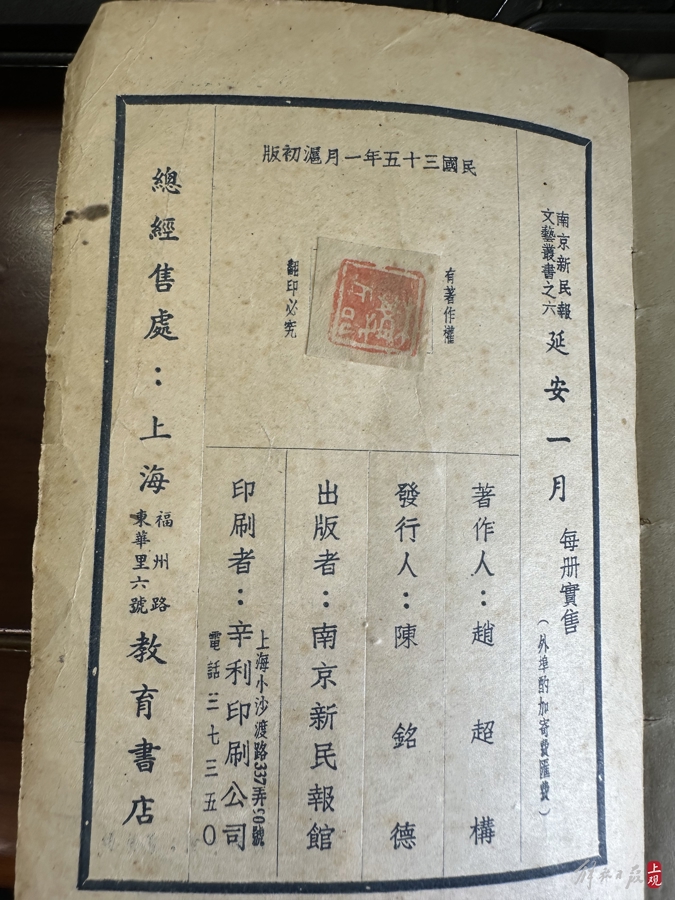 南京新民報
文藝叢書之六
延安一月
每册實售
（外埠酌加寄費匯費）
民國三十五年一月滬初版
有著作權
翻印必究
著作人：趙超構
發行人：陳銘德
出版者：南京新民報館
印刷者：辛利印刷公司
上海小沙渡路337弄90號
電話三七三五〇
總經售處：上海
福州路
東華里六號
教育書店
解放日报
上观